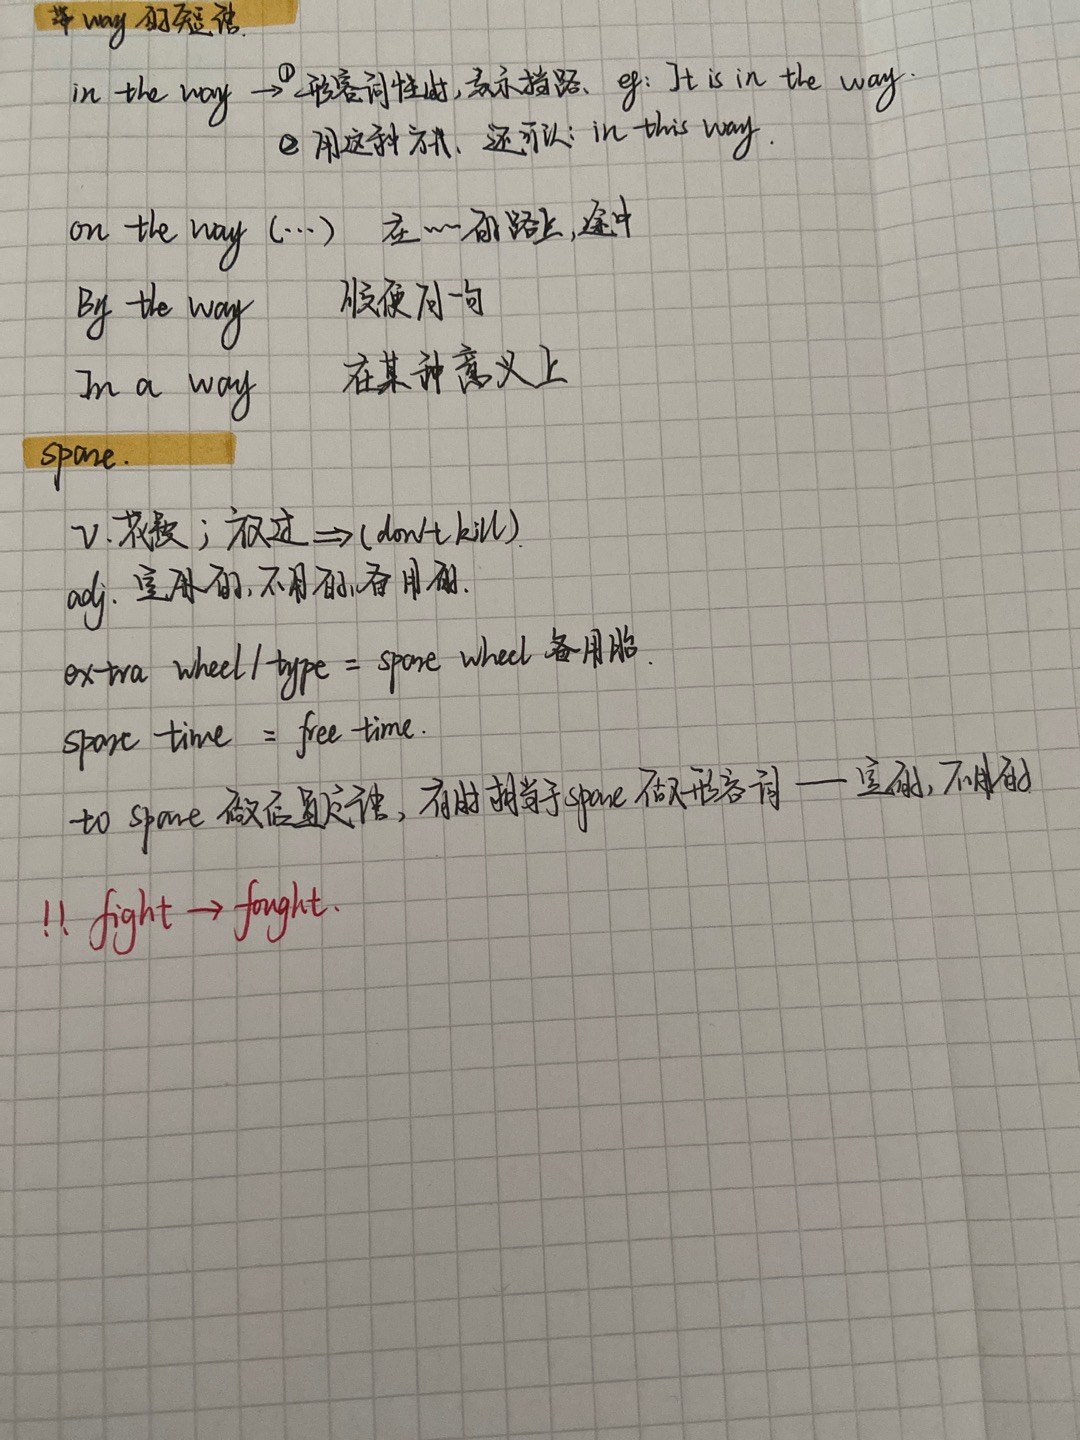 带way的短语.
in the way → ①形容词性时,表示挡路、eg: It is in the way.
② 用这种方式、还可以: in this way.
on the way (...) 在……的路上,途中
By the way 顺便问一句
In a way 在某种意义上
spare.
v. 花费; 放过 ⇒ (don't kill).
adj. 空闲的,不用的,备用的.
extra wheel/type = spare wheel 备用胎.
spare time = free time.
to spare 做后置定语, 有时相当于spare 做形容词 — 空的, 不用的
!! fight → fought.